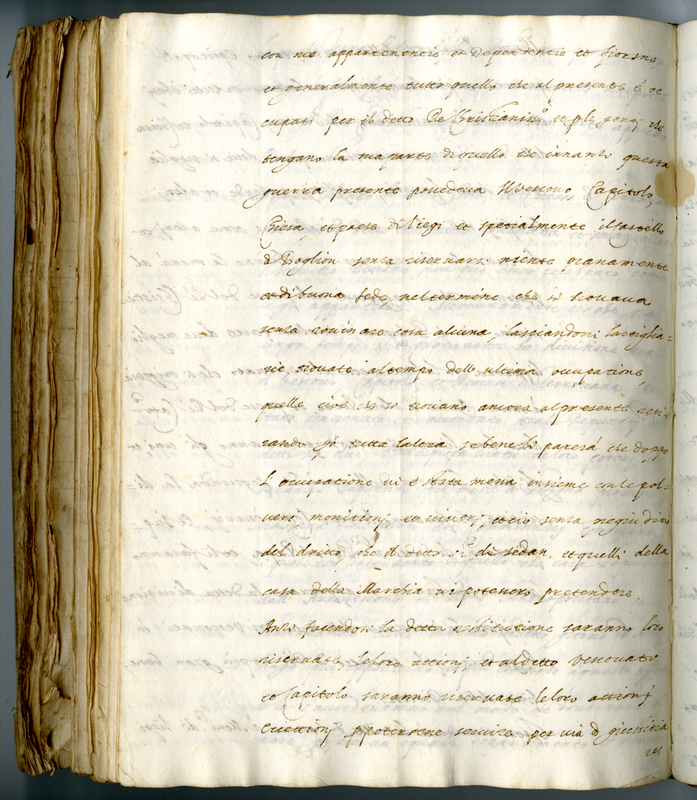 con sue appartenencie, et dependencie et favorano
et generalmente tutto quello che al presente è oc
cupato per il detto Re Christianissᵒ et ple genti che
tengano la sua parte di quello che innanti questa
guerra presente possedeva il Vescovo, Capitolo,
Chiesa, et paese di Liegi et specialmente il Castello
di Boglion senza riservarsi niente, pianamente
et di buona fede, nel termine che si trovava
senza rovinare cosa alcuna, lasciandosi l'artiglia=
rie trovate al tempo dello ultima occupatione,
quelle cioè che si trovano ancora al presente reti
rando si tutta l'altra, sebene li parerà che doppo
l'occupatione vi è stata messa insieme con le pol=
vere, monitioni, et viveri, et ciò senza pregiuditio
del dritto, che il detto sʳ di sedan, et quelli della
casa della Marchia vi potessero pretendere,
Anzi facendosi la detta restitutione saranno loro
riservate le loro attioni, et al detto Vescovato
et Capitolo saranno riservate le loro attioni
Eccettioni p poterscne servire per via di giustitia